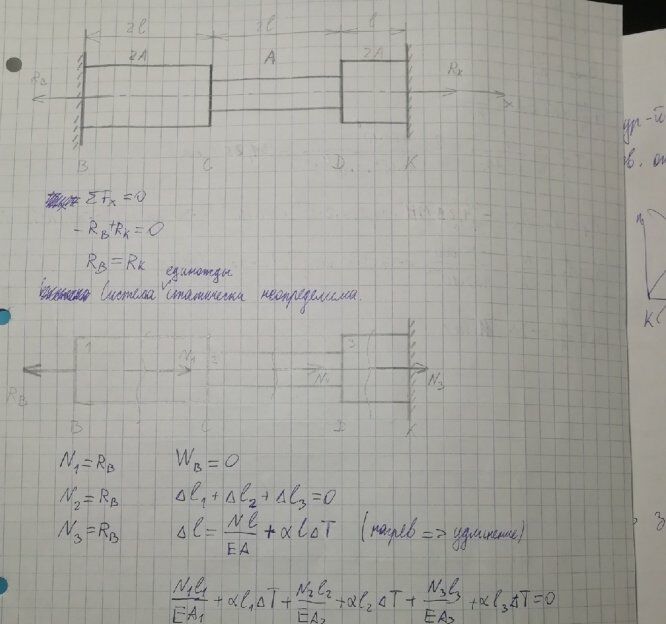 2l 2l l
2A A 2A
R_B R_K x
B C D K
ΣF_x = 0
-R_B + R_K = 0
R_B = R_K
единожды
Система статически неопределима.
1 N_1 2 3
R_B N_3
B C D K
N_1 = R_B W_B = 0
N_2 = R_B Δl_1 + Δl_2 + Δl_3 = 0
N_3 = R_B Δl = Nl/EA + αlΔT (нагрев => удлинение)
N_1l_1/EA_1 + αl_1ΔT + N_2l_2/EA_2 + αl_2ΔT + N_3l_3/EA_3 + αl_3ΔT = 0